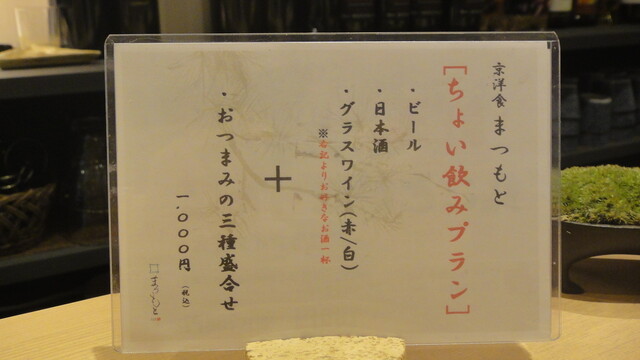 京洋食 まつもと
[ちょい飲みプラン]
・ビール
・日本酒
・グラスワイン(赤/白)
※右記よりお好きなお酒一杯
+
・おつまみの三種盛合せ
一.〇〇〇円(税込)
まつもと